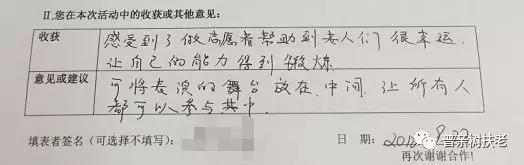 II,您在本次活动中的收获或其他意见:
收获
感受到了做志愿者帮助到老人们很幸运.
让自己的能力得到锻炼
意见或建议
可将表演的舞台放在中间,让所有人
都可以参与其中.
填表者签名(可选择不填写):
日 期:
再次谢谢合作!
普亲树扶老